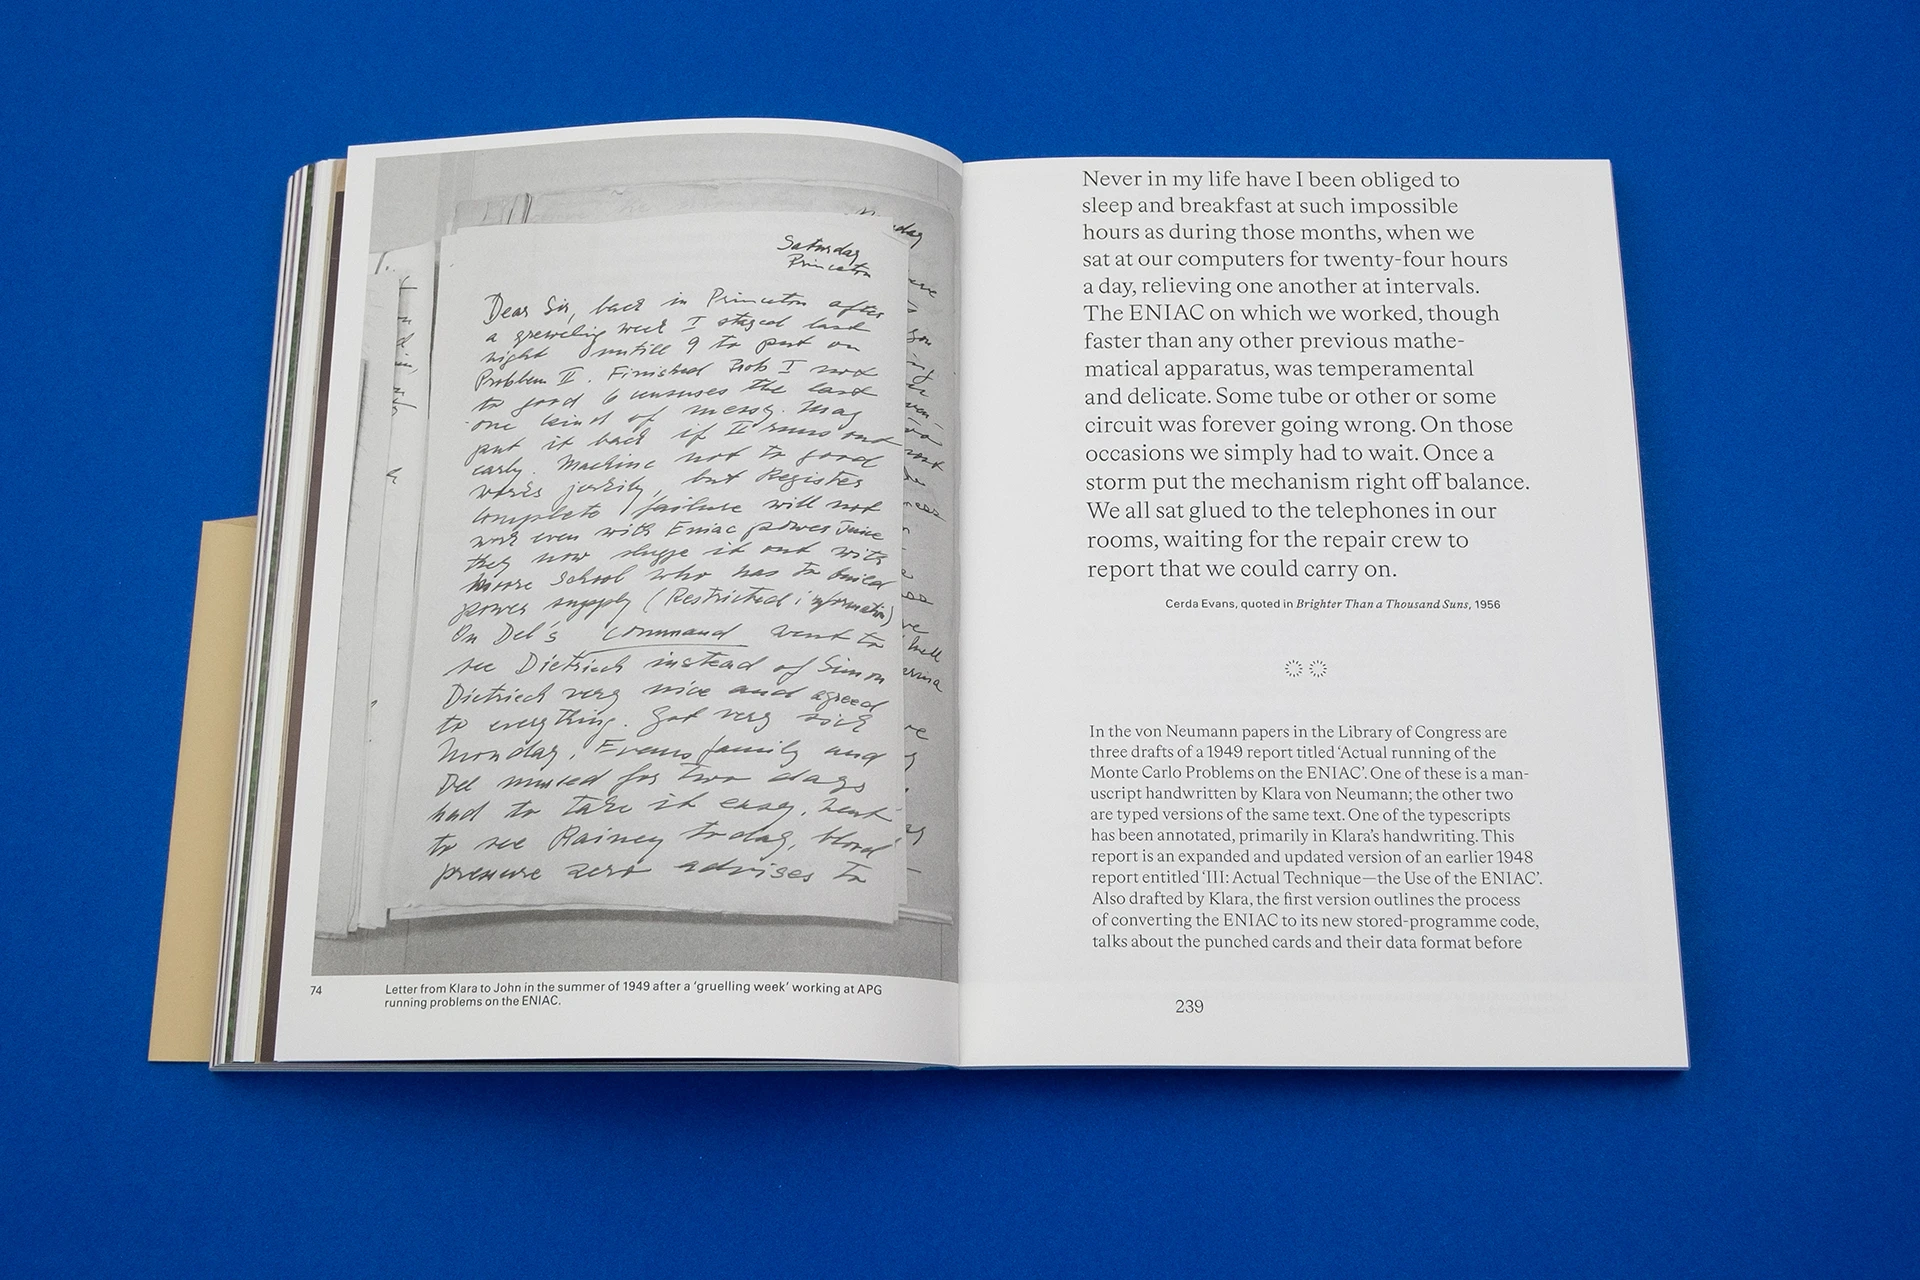 Saturday
Princeton
Dear Sir, back in Princeton after
a greweling week I stayed last
night untill 9 to put on
Problem II. Finished Prob I not
to good 6 censuses the last
one kind of messy. May
put it back if II runs out
early. Machine not to good
works jerkily, but Register
complete failure will not
work even with Eniac power
they now slugge it out with
Moore School who has to build
power supply (Restricted information)
On Del's command went to
see Dietrich instead of Simon
Dietrich very nice and agreed
to everything. Got very sick
Monday, Evans family and
Del nursed for two days
had to take it easy. Went
to see Rainey today, blood
pressure zero advises to
74
Letter from Klara to John in the summer of 1949 after a ‘gruelling week’ working at APG
running problems on the ENIAC.
Never in my life have I been obliged to
sleep and breakfast at such impossible
hours as during those months, when we
sat at our computers for twenty-four hours
a day, relieving one another at intervals.
The ENIAC on which we worked, though
faster than any other previous mathe-
matical apparatus, was temperamental
and delicate. Some tube or other or some
circuit was forever going wrong. On those
occasions we simply had to wait. Once a
storm put the mechanism right off balance.
We all sat glued to the telephones in our
rooms, waiting for the repair crew to
report that we could carry on.
Cerda Evans, quoted in Brighter Than a Thousand Suns, 1956
In the von Neumann papers in the Library of Congress are
three drafts of a 1949 report titled ‘Actual running of the
Monte Carlo Problems on the ENIAC’. One of these is a man-
uscript handwritten by Klara von Neumann; the other two
are typed versions of the same text. One of the typescripts
has been annotated, primarily in Klara’s handwriting. This
report is an expanded and updated version of an earlier 1948
report entitled ‘III: Actual Technique—the Use of the ENIAC’.
Also drafted by Klara, the first version outlines the process
of converting the ENIAC to its new stored-programme code,
talks about the punched cards and their data format before
239